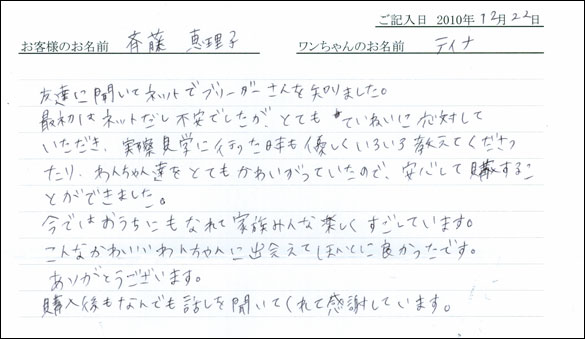 ご記入日 2010年12月22日
お客様のお名前 斉藤 恵理子 ワンちゃんのお名前 ティナ
友達に聞いてネットでブリーダーさんを知りました。
最初はネットだし不安でしたが、とてもていねいに応対して
いただき、実際見学に行った時も優しくいろいろ教えてくださっ
たり、わんちゃん達をとてもかわいがっていたので、安心して購入するこ
とができました。
今ではおうちにもなれて家族みんな楽しくすごしています。
こんなかわいいわんちゃんに出会えてほんとに良かったです。
ありがとうございます。
購入後もなんでも話しを聞いてくれて感謝しています。